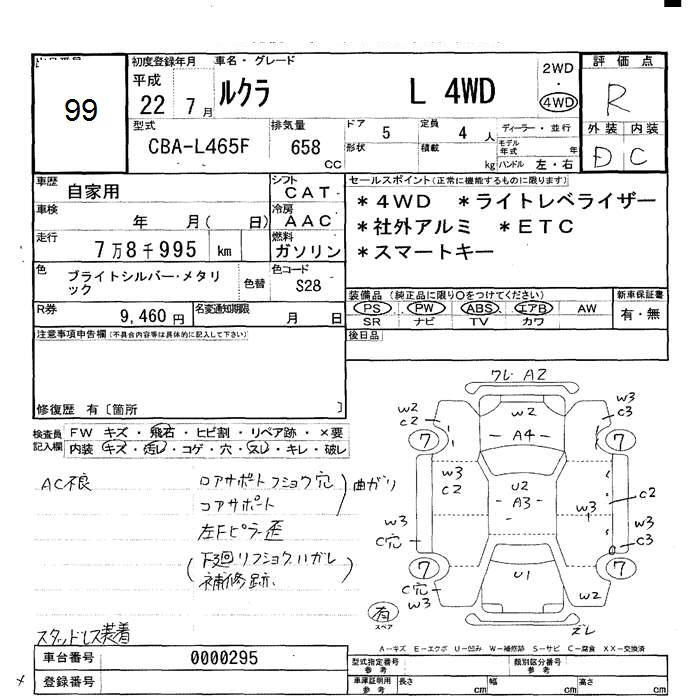 99
初度登録年月 車名・グレード 評価点
平成 22 7月 ルクラ L 4WD 2WD・4WD R
型式 排気量 ドア 5 定員 4人 ディーラー・並行 外装 内装
CBA-L465F 658 cc 形状 積載 kg モデル年式 年 ハンドル 左・右 D C
車歴 自家用 シフト CAT セールスポイント(正常に機能するものに限ります)
車検 年 月( 日) 冷房 AAC *4WD *ライトレベライザー
走行 7万8千995 km 燃料 ガソリン *社外アルミ *ETC
*スマートキー
色 ブライトシルバー・メタリック 色替 色コード S28
装備品(純正品に限り○をつけてください) 新車保証書
R券 9,460円 名変通知期限 月 日 PS PW ABS エアB AW 有・無
SR ナビ TV カワ
注意事項申告欄(不具合内容等は具体的に記入して下さい) 後日品
修復歴 有〔箇所 〕
検査員記入欄 FW キズ・飛石・ヒビ割・リペア跡・×要
内装 キズ・汚レ・コゲ・穴・スレ・キレ・破レ
AC不良 ロアサポートフショウ穴 曲がり
コアサポート
左Fピラー歪
(下廻リフショクハガレ
補修跡)
スタッドレス装着
ワレ A2
W2 C2 W2 W3 C3
7 A4 7
W3 C2 U2 A3 W3 C2
W3 C穴 W3 C3
7 U1 7
C穴 W3 W2 C2
有 スペア ズレ
A-キズ E-エクボ U-凹み W-補修跡 S-サビ C-腐食 XX-交換済
車台番号 0000295 型式指定番号 参考 類別区分番号 参考
登録番号 車庫証明用 参考 長さ cm 幅 cm 高さ cm